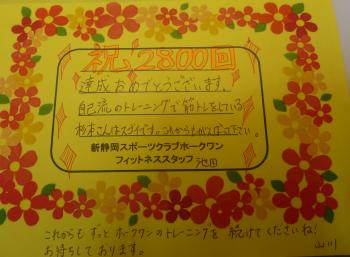 祝、2800回
達成おめでとうございます。
自己流のトレーニングで筋トレをしている
杉本さんはスゴイです。これからもがんばって下さい。
新静岡スポーツクラブホークワン
フィットネススタッフ 池田
これからも ずっと ホークワンのトレーニングを 続けてくださいね!
お待ちしております。
山川